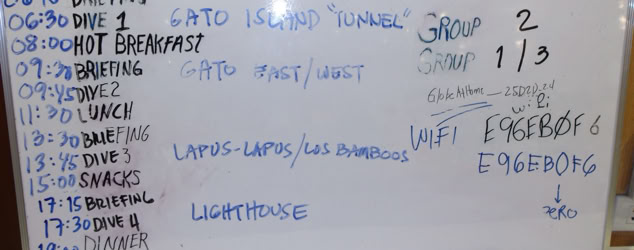 06:30 DIVE 1 GATO ISLAND "TUNNEL" GROUP 2
08:00 HOT BREAKFAST GROUP 1/3
09:30 BRIEFING GATO EAST/WEST
09:45 DIVE2
11:30 LUNCH
WiFi
13:30 BRIEFING WIFI E96EBØF6
13:45 DIVE 3 LAPUS-LAPUS/LOS BAMBOOS E96EB0F6
15:00 SNACKS
17:15 BRIEFING
17:30 DIVE 4 LIGHTHOUSE ZERO
DINNER